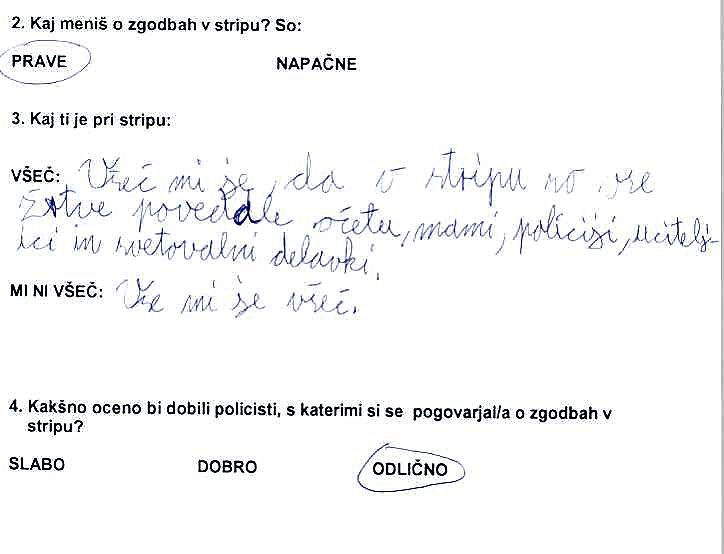 2. Kaj meniš o zgodbah v stripu? So:
PRAVE NAPAČNE
3. Kaj ti je pri stripu:
VŠEČ: Všeč mi je, da v stripu so vse
žrtve povedale očetu, mami, policiji, učitelji-
ici in svetovalni delavki.
MI NI VŠEČ: Vse mi je všeč.
4. Kakšno oceno bi dobili policisti, s katerimi si se pogovarjal/a o zgodbah v
stripu?
SLABO DOBRO ODLIČNO